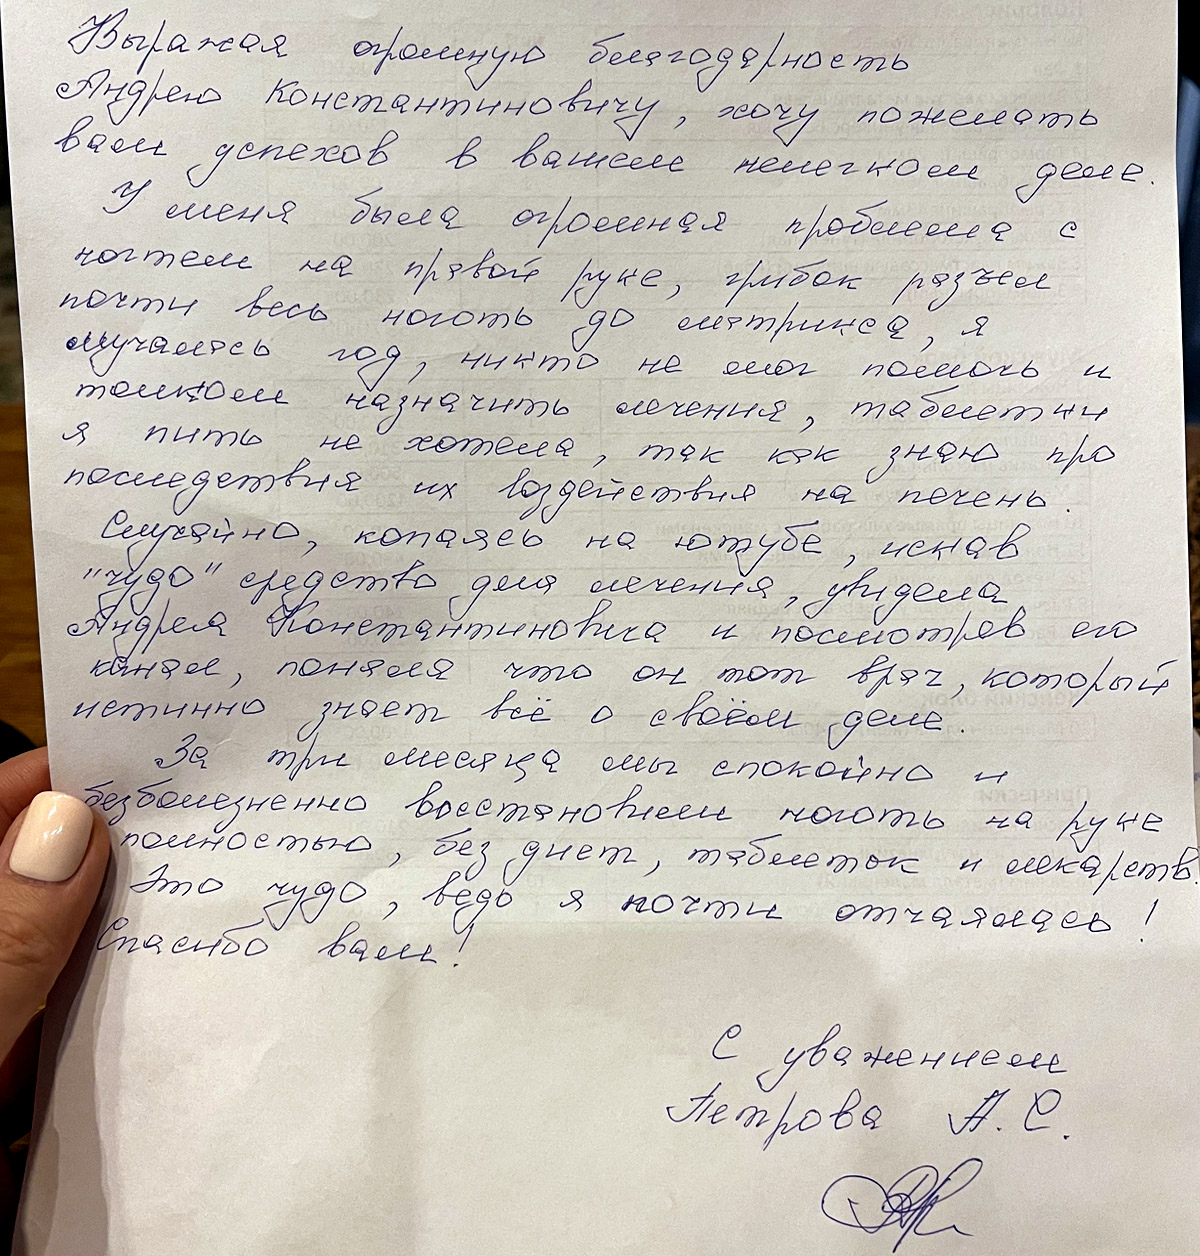 Выражая огромную благодарность
Андрею Константиновичу, хочу пожелать
вам успехов в вашем нелегком деле.
У меня была огромная проблема с
ногтем на правой руке, грибок разъел
почти весь ноготь до матрикса, я
мучалась год, никто не мог помочь и
толком назначить лечения, таблетки
я пить не хотела, так как знаю про
последствия их воздействия на печень.
Случайно, копаясь на ютубе, искав
"чудо" средство для лечения, увидела
Андрея Константиновича и посмотрев его
канал, поняла что он тот врач, который
истинно знает всё о своём деле.
За три месяца мы спокойно и
безболезненно восстановили ноготь на руке
полностью, без диет, таблеток и лекарств.
Это чудо, ведь я почти отчаялась!
Спасибо вам!
С уважением
Петрова А. С.